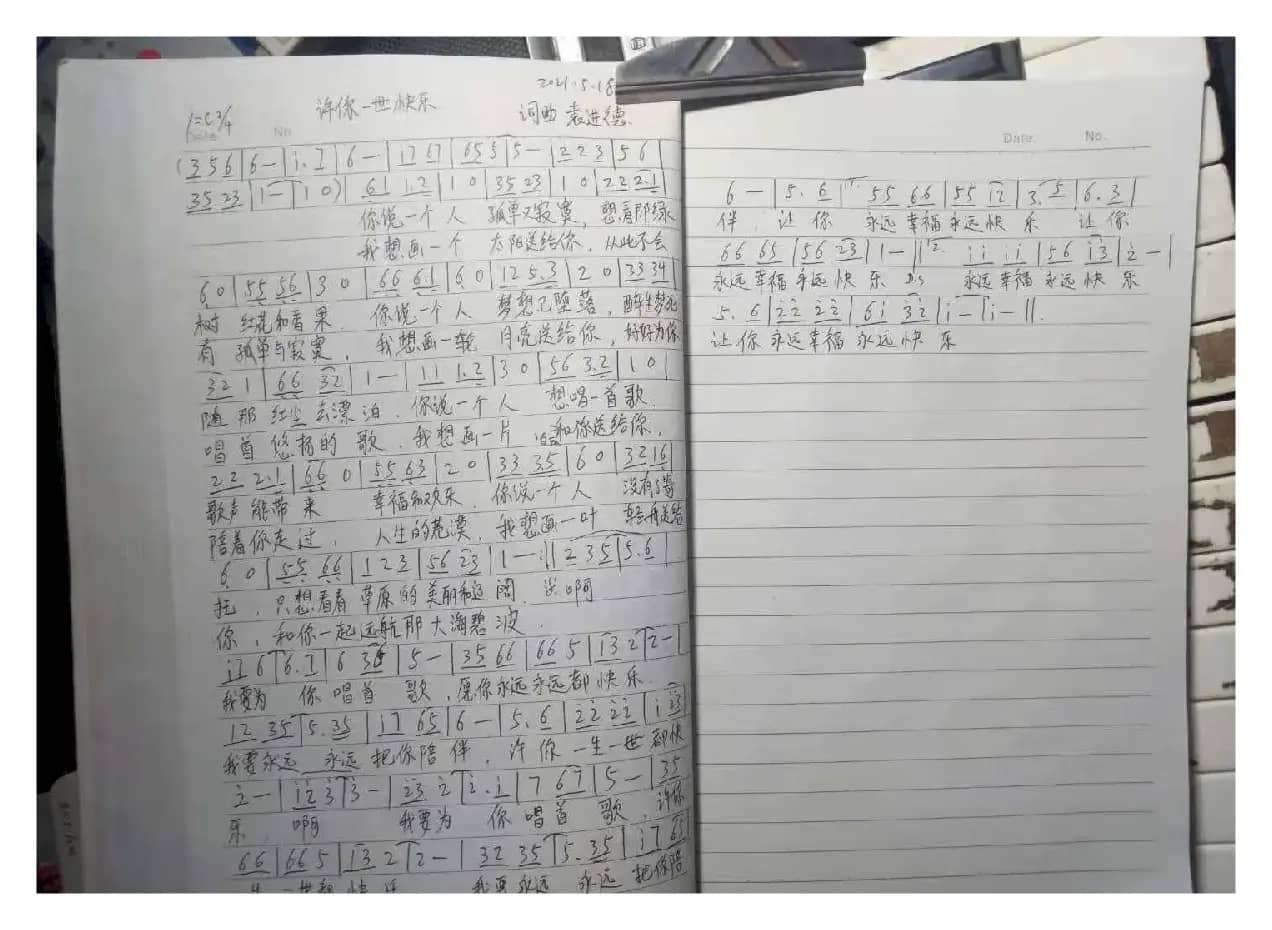 2021.5.18
许你一世快乐
1=C 2/4 词曲 袁进德
Date No
(3 5 6 | 6 — | i. 7 | 6 — | i7 67 | 65 5 | 5 — | 2 2 3 | 5 6 |
35 23 | 1 — | 1 0) | 61 1.2 | 1 0 | 35 23 | 1 0 | 22 2.1 |
你说一个人 孤单又寂寞, 想看那绿
我想画一个 太阳送给你, 从此不会
6 0 | 55 56 | 3 0 | 66 61 | 6 0 | 12 5.3 | 2 0 | 33 34 |
树 红花和青果. 你说一个人 梦想已堕落, 醉生梦死
有 孤单与寂寞, 我想画一轮 月亮送给你, 好好为你
32 1 | 66 32 | 1 — | 11 1.2 | 3 0 | 56 3.2 | 1 0 |
随那红尘去漂泊. 你说一个人 想唱一首歌
唱首悠扬的歌. 我想画一片 和你送给你,
22 2.1 | 66 0 | 55 63 | 2 0 | 33 35 | 6 0 | 32 16 |
歌声能带来 幸福和欢乐. 你说一个人 没有
陪着你走过, 人生的荒漠, 我想画一叶 轻舟送给
6 0 | 55 66 | 12 3 | 56 23 | 1 — :|| 2 35 | 5. 6 |
托, 只想看看草原的美丽和辽阔. 啊
你, 和你一起远航那大海碧波.
i7 6 | 6. 7 | 6 36 | 5 — | 35 66 | 66 5 | 13 2 | 2 — |
我要为 你唱首 歌, 愿你永远永远都快乐.
12 35 | 5. 35 | i7 65 | 6 — | 5. 6 | 22 22 | i 23 |
我要永远 永远把你陪伴, 许你一生一世都快
2 — | i2 3 | 3 — | 23 2 | 2. i | 7 67 | 5 — | 35
乐. 啊 我要为 你唱首 歌, 许你
66 | 66 5 | 13 2 | 2 — | 32 35 | 5. 35 | i7 65 |
一世都快乐 我要永远 永远把你陪
Date. No.
6 — | 5. 6 | 1. 55 66 | 55 12 | 3. 5 | 6. 3 |
伴, 让你 永远幸福永远快乐 让你
66 65 | 56 23 | 1 — | 2. ii ii | 56 i3 | 2 — |
永远幸福永远快乐 D.S 永远幸福永远快乐
5. 6 | 22 22 | 6i 32 | i — | i — ||.
让你永远幸福永远快乐